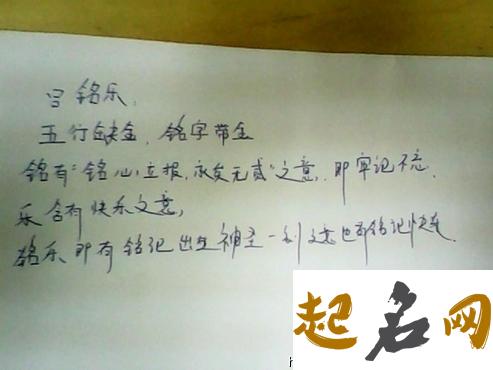 吕铭乐,
五行缺金, 铭字带金
铭有“铭心立报, 永矢无贰”之意, 即牢记不忘.
乐含有快乐之意,
铭乐即有铭记出生神圣一刻之意也有铭记快乐.
起名网
h